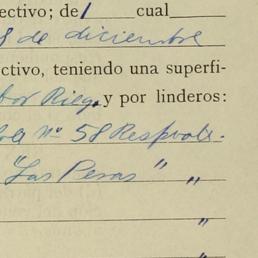 ectivo; del cual
8 de diciembre
ctivo, teniendo una superfi-
or Riego y por linderos:
Nº 58 Respvols.
"Las Peras" "
"
"